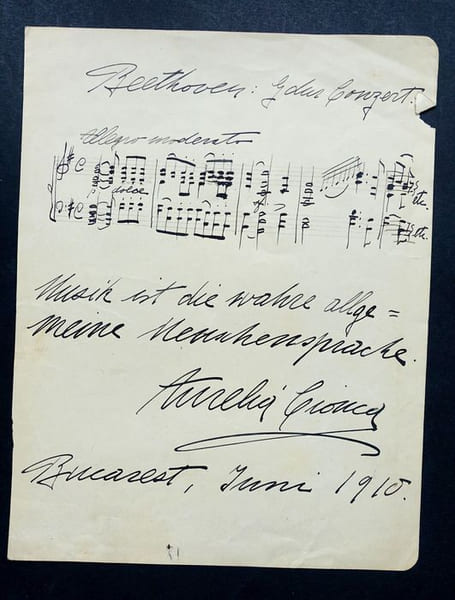 Beethoven: Gdur Conzert.
Allegro moderato
dolce
etc.
etc.
Musik ist die wahre allge=
meine Menschensprache.
Aurelia Cionca
Bucarest, Juni 1910.